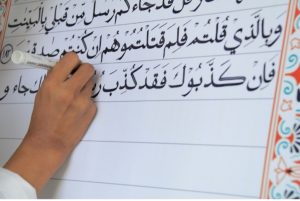 قل قد جاءكم رسل من قبلي بالبينت
وبالذي قلتم فلم قتلتموهم ان كنتم صدقين
فان كذبوك فقد كذب جاء و